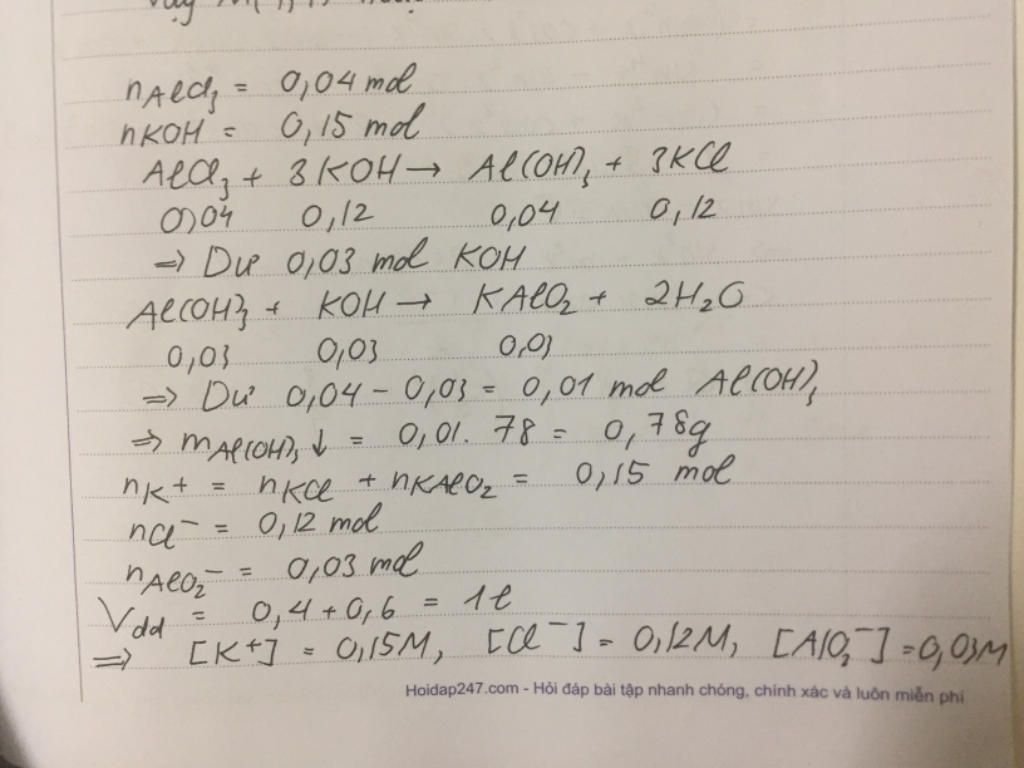 Vậy
nAlCl₃ = 0,04 mol
nKOH = 0,15 mol
AlCl₃ + 3KOH → Al(OH)₃ + 3KCl
0,04 0,12 0,04 0,12
=> Dư 0,03 mol KOH
Al(OH)₃ + KOH → KAlO₂ + 2H₂O
0,03 0,03 0,03
=> Dư 0,04 - 0,03 = 0,01 mol Al(OH)₃
=> mAl(OH)₃↓ = 0,01. 78 = 0,78g
nK⁺ = nKCl + nKAlO₂ = 0,15 mol
nCl⁻ = 0,12 mol
nAlO₂⁻ = 0,03 mol
Vdd = 0,4 + 0,6 = 1l
=> [K⁺] = 0,15M, [Cl⁻] = 0,12M, [AlO₂⁻] = 0,03M
Hoidap247.com - Hỏi đáp bài tập nhanh chóng, chính xác và luôn miễn phí